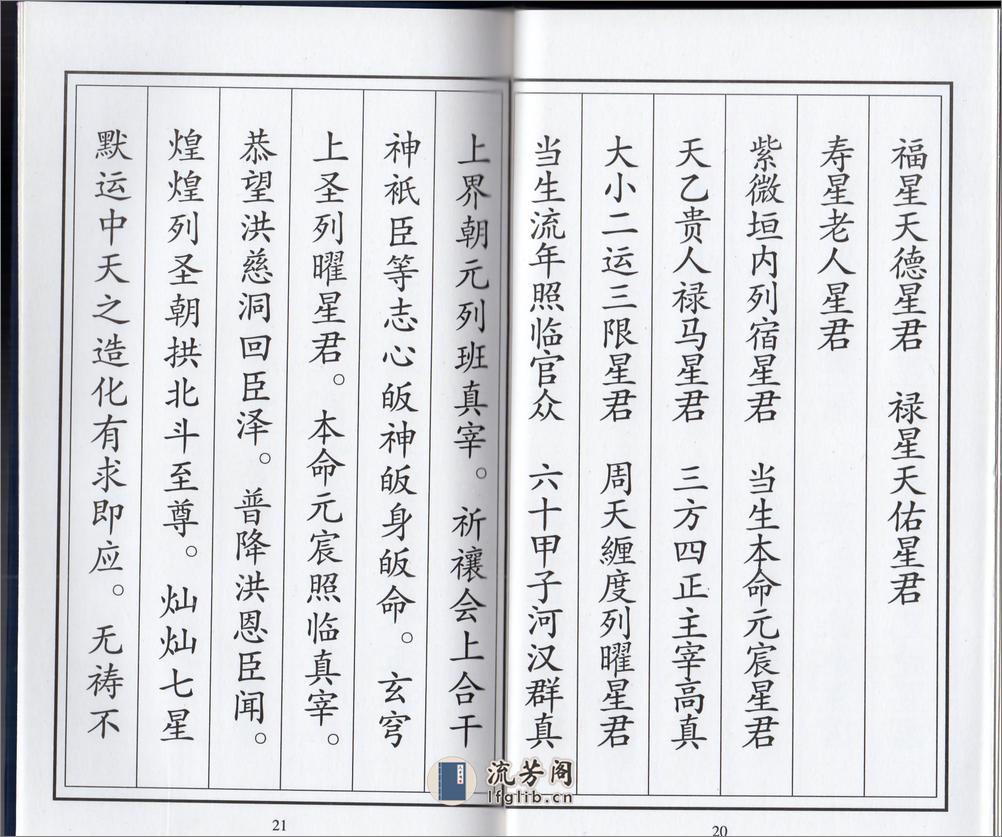 福星天德星君　禄星天佑星君
寿星老人星君
紫微垣内列宿星君　当生本命元宸星君
天乙贵人禄马星君　三方四正主宰高真
大小二运三限星君　周天缠度列曜星君
当生流年照临官众　六十甲子河汉群真
上界朝元列班真宰。祈禳会上合干
神祇臣等志心皈神皈身皈命。玄穹
上圣列曜星君。本命元宸照临真宰。
恭望洪慈洞回臣泽。普降洪恩臣闻。
煌煌列圣朝拱北斗至尊。灿灿七星
默运中天之造化有求即应。无祷不
21
20
流芳阁
lfglib.cn